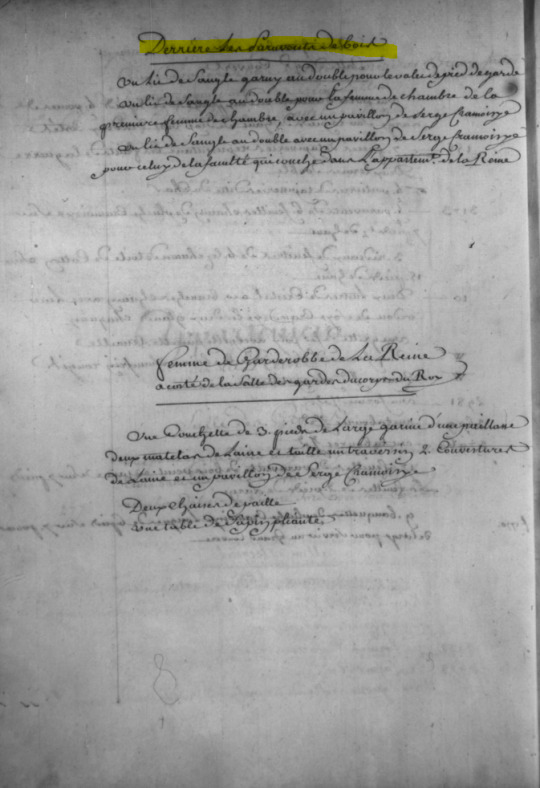 Derriere Les Paravents de bois
un lit de sangle garny au double pour le valet de pied de garde
un lit de sangle au double pour la femme de chambre de la
premiere femme de chambre, avec un pavillon de serge Cramoisye
un lit de sangle au double avec un pavillon de serge Cramoisye
pour celuy de la faculté qui couche dans L'appartemt. de la Reine
femme de Garderobbe de La Reine
a coté de la Salle des gardes du corps du Roy
Une Couchette de 3. pieds de Large garnie d'une paillasse
deux matelas de Laine et toille un traversin 2. Couvertures
de Laine et un pavillon de Serge Cramoisye
Deux chaises de paille
une table de Sapin pliante